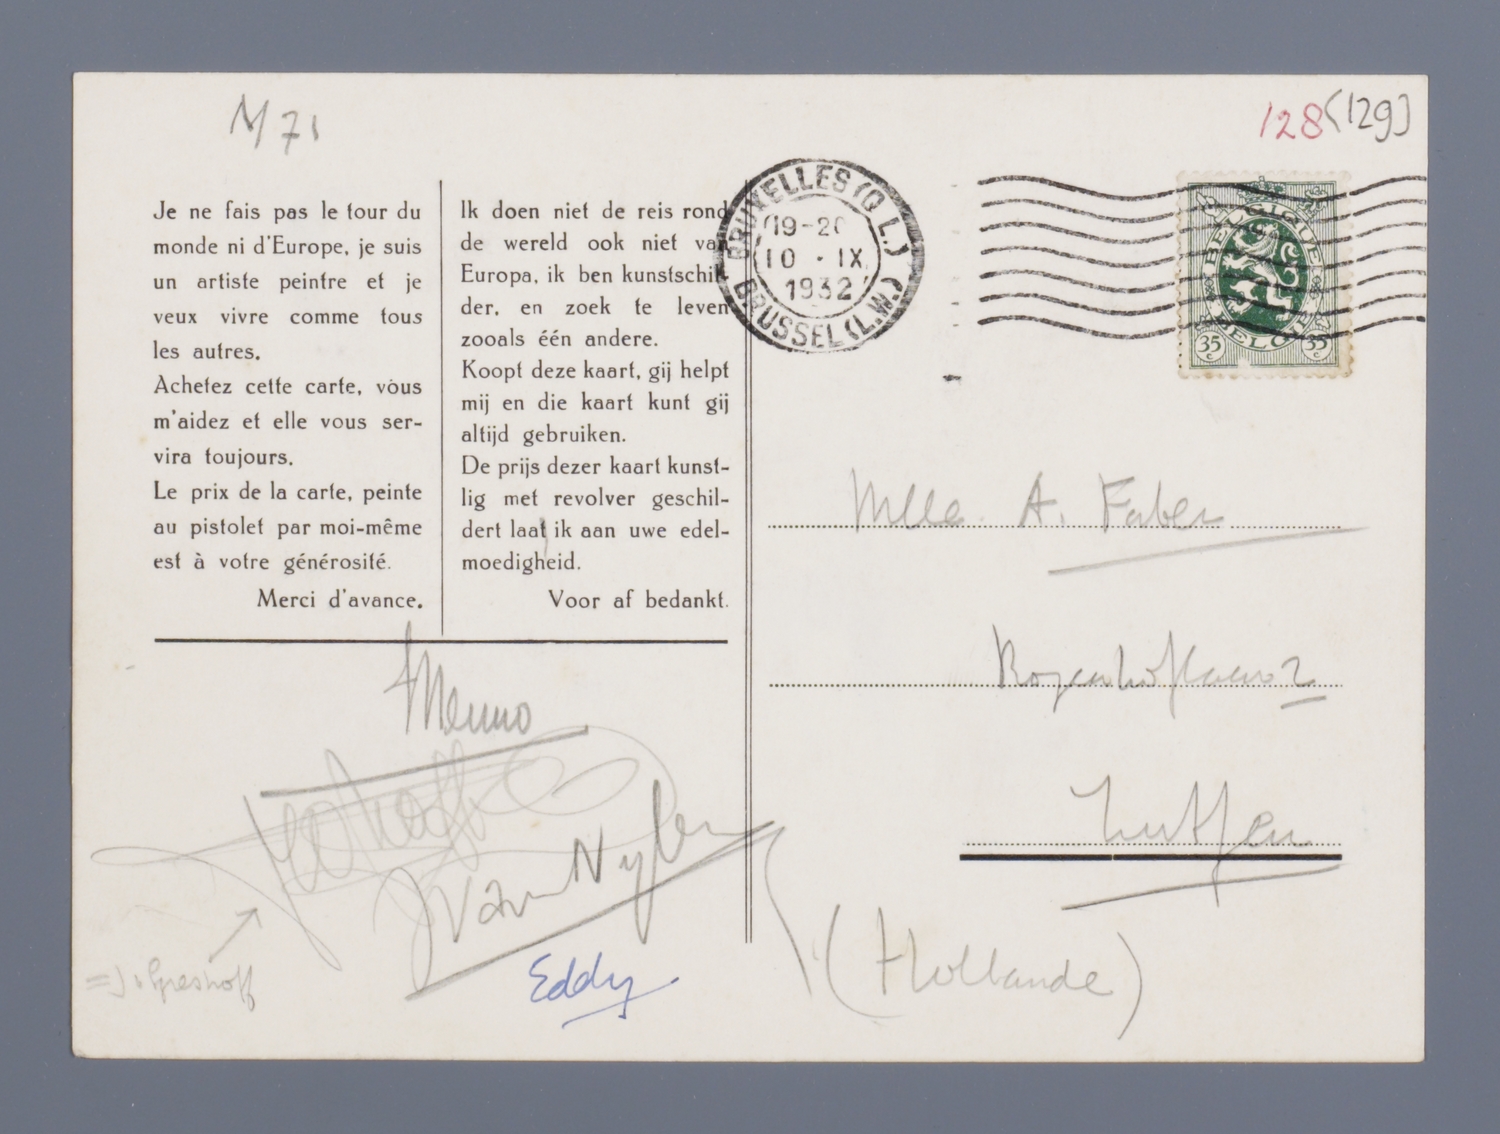 M 71
128 (129)
Je ne fais pas le tour du
monde ni d'Europe, je suis
un artiste peintre et je
veux vivre comme tous
les autres.
Achetez cette carte, vous
m'aidez et elle vous ser-
vira toujours.
Le prix de la carte, peinte
au pistolet par moi-même
est à votre générosité.
Merci d'avance.
Ik doen niet de reis rond
de wereld ook niet van
Europa, ik ben kunstschil-
der, en zoek te leven
zooals één andere.
Koopt deze kaart, gij helpt
mij en die kaart kunt gij
altijd gebruiken.
De prijs dezer kaart kunst-
lig met revolver geschil-
dert laat ik aan uwe edel-
moedigheid.
Voor af bedankt.
BRUXELLES (Q.L.)
19-20
10 · IX
1932
BRUSSEL (L.W.)
BELGIQUE
BELGIË
35 c
35 c
Mlle. A. Faber
Rozenhoflaan 2
Zutfen
(Hollande)
Menno
JGreshoff
JvanNylen
Eddy
= J. Greshoff